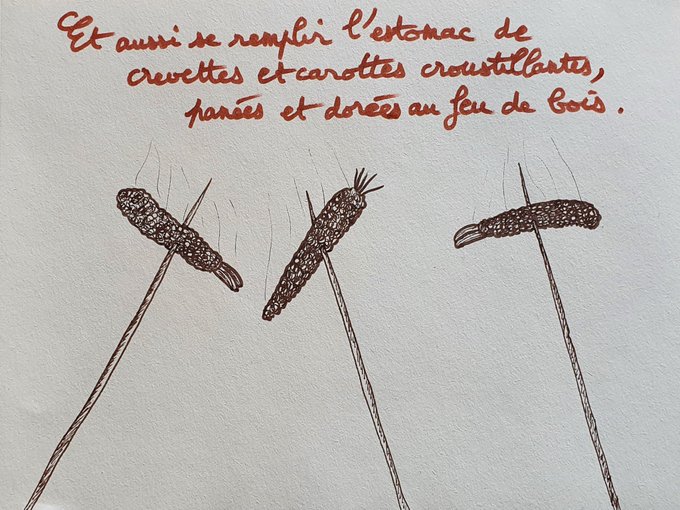 Et aussi se remplir l'estomac de
crevettes et carottes croustillantes,
panées et dorées au feu de bois.